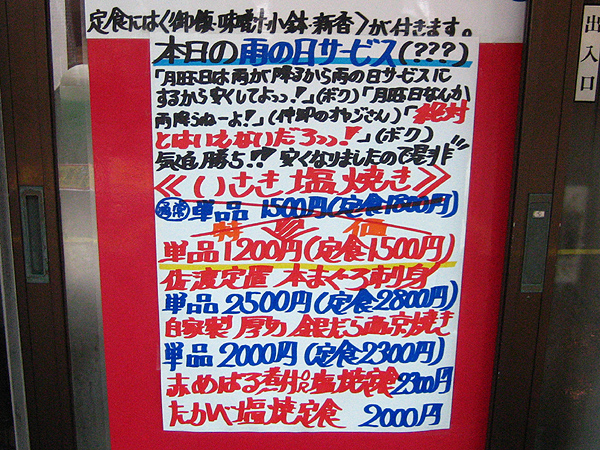 定食には〈御飯・味噌汁・小鉢・新香〉が付きます。
本日の雨の日サービス(???)
「月曜日は雨が降るから雨の日サービスに
するから安くしてよっっ!」(ボク)「月曜日なんか
雨降らねーよ!」(仲卸のオヤジさん)「絶対
とはいえないだろっっ!」(ボク)
気迫勝ち!!安くなりましたので是非
≪いさき塩焼き≫
通常 単品1500円(定食1800円)
特価
単品1200円(定食1500円)
佐渡定置 本まぐろ刺身
単品2500円(定食2800円)
自家製 厚切 銀だら西京焼き
単品2000円(定食2300円)
赤めばる煮付OR塩焼定食2300円
たかべ塩焼定食 2000円
出入口